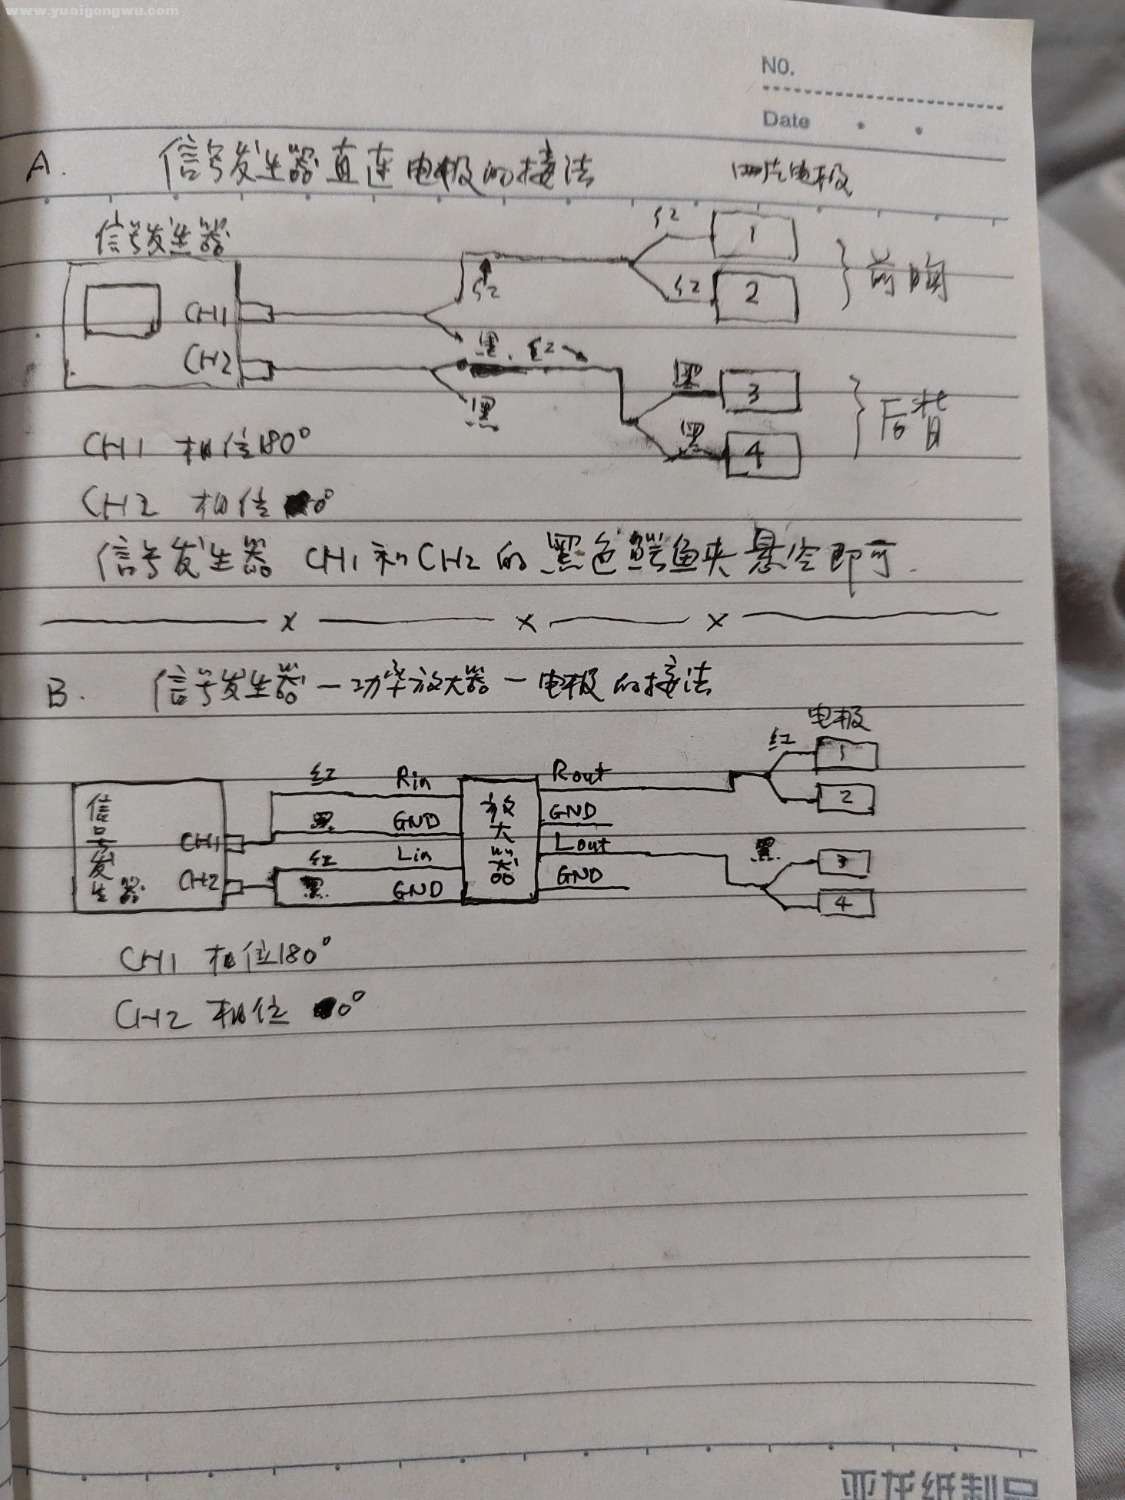 www.yuaigongwu.com
NO.
Date
A. 信号发生器直连电极的接法 四片电极
信号发生器
红 1
红 2
前胸
CH1
红
CH2
黑 红
黑
黑 3
黑 4
后背
CH1 相位180°
CH2 相位 0°
信号发生器 CH1和CH2的黑色鳄鱼夹悬空即可.
x x x
B. 信号发生器-功率放大器-电极的接法
电极
信号发生器
CH1
CH2
红 Rin
黑 GND
红 Lin
黑 GND
放大器
Rout
GND
Lout
GND
红 1
2
黑 3
4
CH1 相位180°
CH2 相位 0°
亚龙纸制品